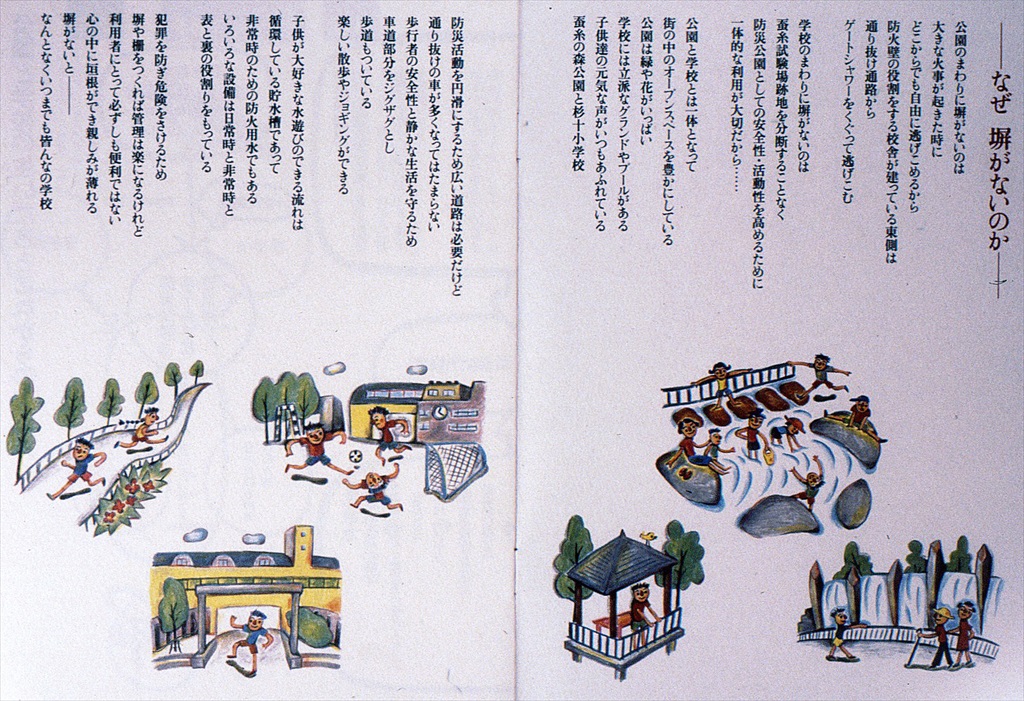 ──なぜ 塀がないのか──
公園のまわりに塀がないのは
大きな火事が起きた時に
どこからでも自由に逃げこめるから
防火壁の役割をする校舎が建っている東側は
通り抜け通路から
ゲートシャワーをくぐって逃げこむ
学校のまわりに塀がないのは
蚕糸試験場跡地を分断することなく
防災公園としての安全性・活動性を高めるために
一体的な利用が大切だから……
公園と学校とは一体となって
街の中のオープンスペースを豊かにしている
公園は緑や花がいっぱい
学校には立派なグランドやプールがある
子供達の元気な声がいつもあふれている
蚕糸の森公園と杉十小学校
防災活動を円滑にするため広い道路は必要だけど
通り抜けの車が多くなってはたまらない
歩行者の安全性と静かな生活を守るため
車道部分をジグザグとし
歩道もついている
楽しい散歩やジョギングができる
子供が大好きな水遊びのできる流れは
循環している貯水槽であって
非常時のための防火用水でもある
いろいろな設備は日常時と非常時と
表と裏の役割りをもっている
犯罪を防ぎ危険をさけるため
塀や柵をつくれば管理は楽になるけれど
利用者にとって必ずしも便利ではない
心の中に垣根ができ親しみが薄れる
塀がないと───
なんとなくいつまでも皆んなの学校